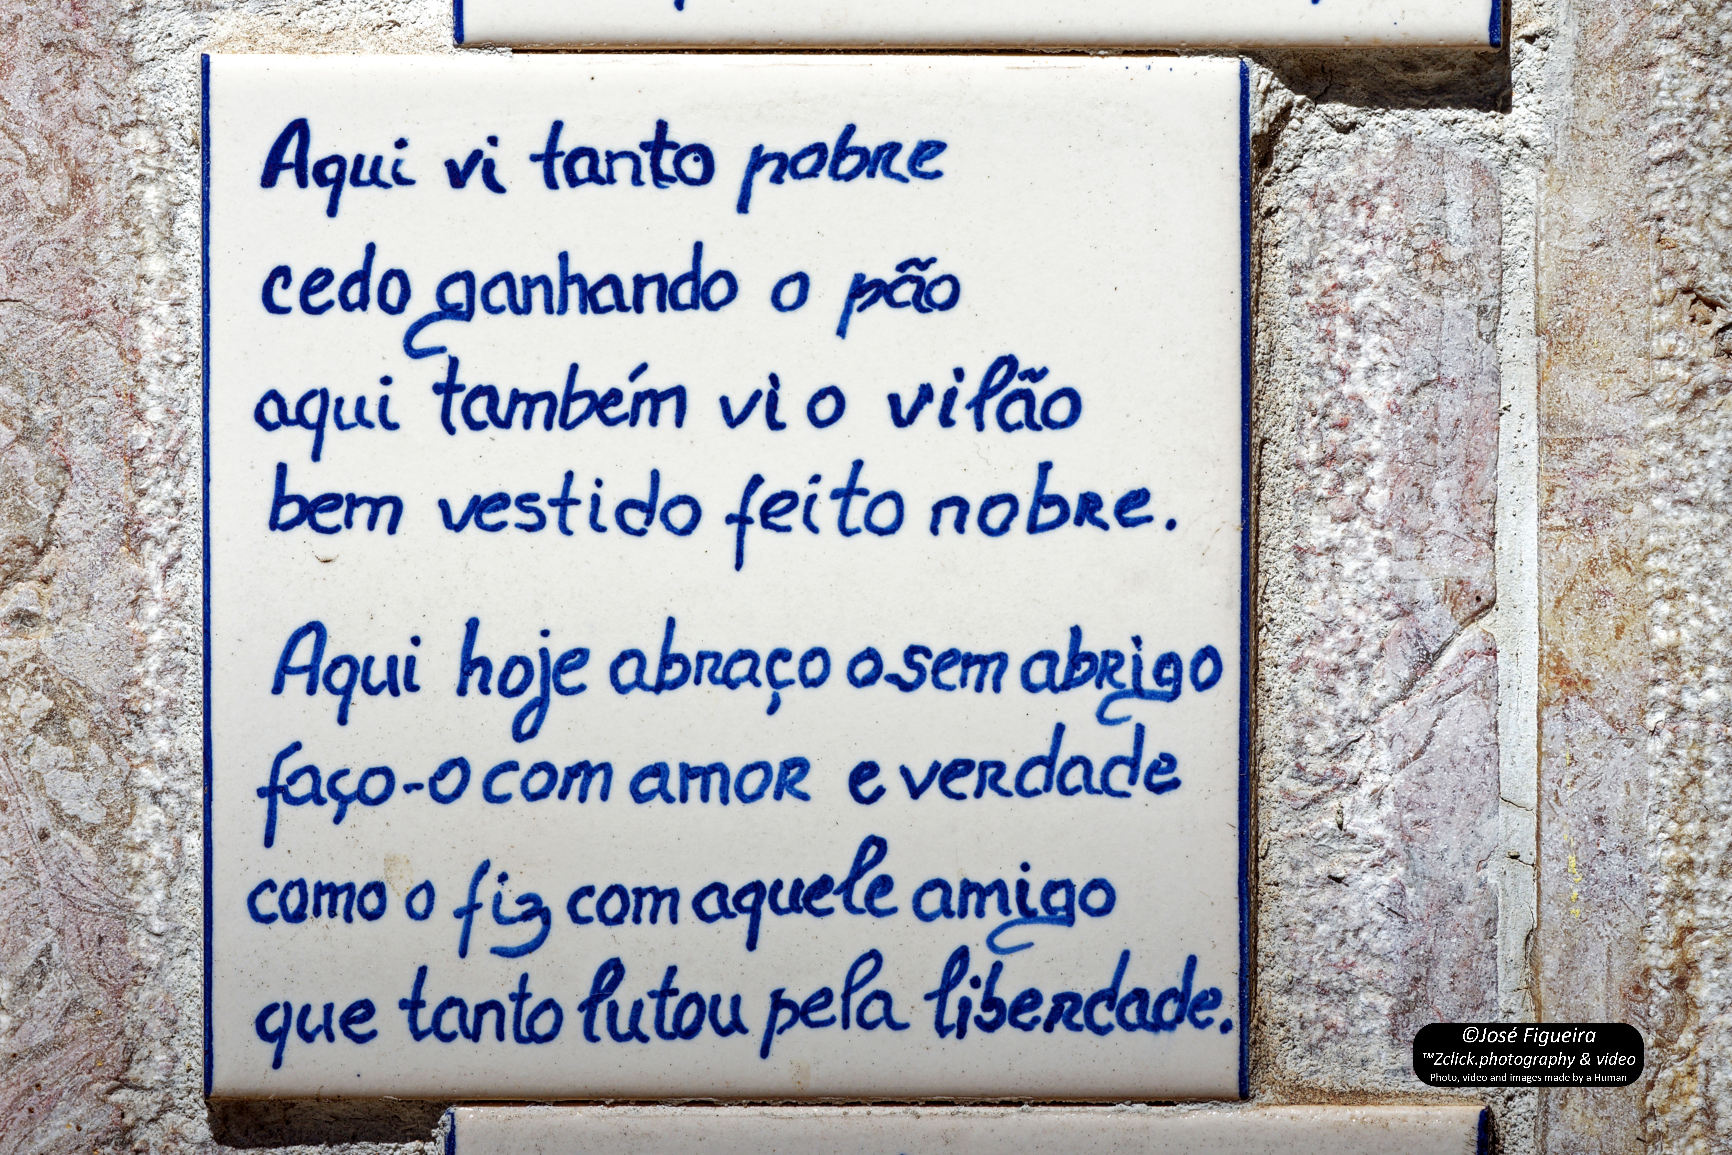 Aqui vi tanto pobre
cedo ganhando o pão
aqui também vi o vilão
bem vestido feito nobre.
Aqui hoje abraço o sem abrigo
faço-o com amor e verdade
como o fiz com aquele amigo
que tanto lutou pela liberdade.
©José Figueira
™Zclick.photography & video
Photo, video and images made by a Human